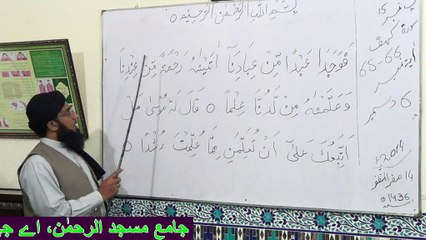 بسم الله الرحمن الرحيم ○
فَوَجَدَا عَبْدًا مِّنْ عِبَادِنَا آتَيْنٰهُ رَحْمَةً مِّنْ عِنْدِنَا
وَعَلَّمْنٰهُ مِنْ لَّدُنَّا عِلْمًا ○ قَالَ لَهٗ مُوْسٰى هَلْ
اَتَّبِعُكَ عَلٰٓى اَنْ تُعَلِّمَنِ مِمَّا عُلِّمْتَ رُشْدًا ○
سورة كهف
65-66
6 دسمبر
2014ء
14 صفر المظفر
1436
جامع مسجد الرحمٰن، اے جر